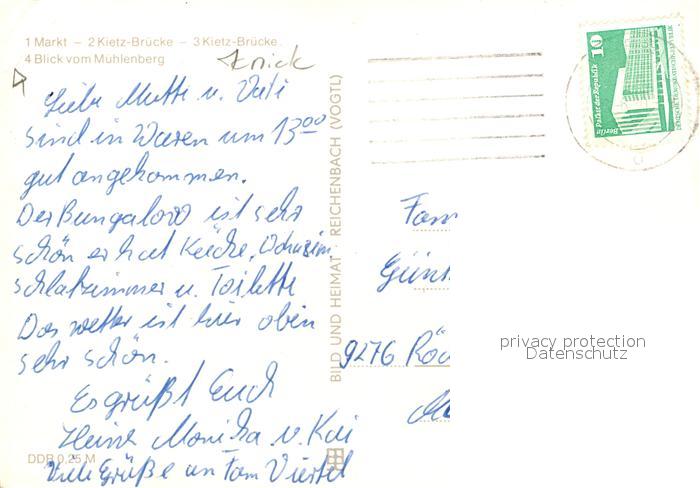 1 Markt – 2 Kietz-Brücke – 3 Kietz-Brücke
4 Blick vom Mühlenberg
Knick
Liebe Mutti u. Vati
sind in Waren um 13⁰⁰
gut angekommen.
Der Bungalow ist sehr
schön er hat Küche, Wohnzim
schlafzimmer u. Toilette
Das wetter ist hier oben
sehr schön.
Es grüßt Euch
Heinz Monika u. Kai
Viele Grüße an Fam Viertel
DDR 0,25 M
BILD UND HEIMAT · REICHENBACH (VOGTL)
10
Palast der Republik
Berlin
DEUTSCHE DEMOKRATISCHE REPUBLIK
Fam
Günt
9276 Röd
privacy protection
Datenschutz